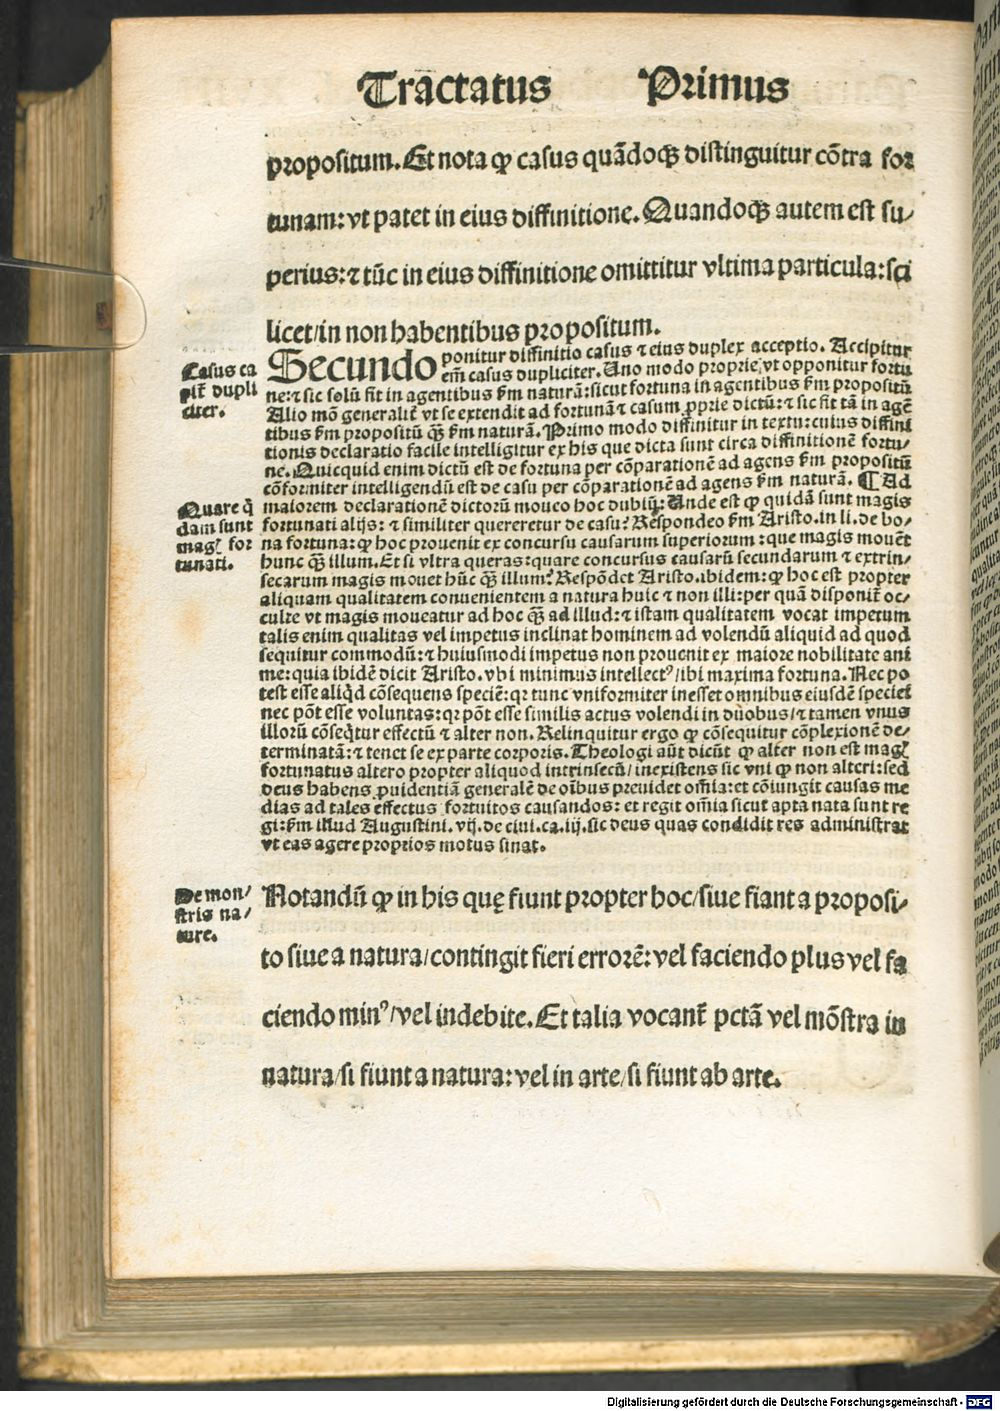 Tractatus Primus
propositum. Et nota ꝙ casus quãdoqꝫ distinguitur cõtra for
tunam: vt patet in eius diffinitione. Quandoqꝫ autem est su/
perius: ⁊ tũc in eius diffinitione omittitur vltima particula: sci
licet/ in non habentibus propositum.
Casus ca
pit᷑ dupli
citer.
Secundo ponitur diffinitio casus ⁊ eius duplex acceptio. Accipitur
em̃ casus dupliciter. Uno modo proprie, vt opponitur fortu
ne: ⁊ sic solũ fit in agentibus ẜm naturã: sicut fortuna in agentibus ẜm propositũ
Alio mõ generalit᷑ vt se extendit ad fortunã ⁊ casum ꝓprie dictũ: ⁊ sic fit tã in agẽ
tibus ẜm propositũ qꝫ̃ ẜm naturã. Primo modo diffinitur in textu: cuius diffini
tionis declaratio facile intelligitur ex his que dicta sunt circa diffinitionẽ fortu/
ne. Quicquid enim dictũ est de fortuna per cõparationẽ ad agens ẜm propositũ
cõformiter intelligendũ est de casu per cõparationẽ ad agens ẜm naturã. ¶ Ad
Quare q̃
dam sunt
mag᷑ for
tunati.
maiorem declarationẽ dictorũ mouco hoc dubiũ: Unde est ꝙ quidã sunt magis
fortunati alijs: ⁊ similiter quereretur de casu? Respondeo ẜm Aristo. in li. de bo/
na fortuna: ꝙ hoc prouenit ex concursu causarum superiorum: que magis mouẽt
hunc qꝫ̃ illum. Et si vltra queras: quare concursus causarũ secundarum ⁊ extrin/
secarum magis mouet hũc qꝫ̃ illum? Respõdet Aristo. ibidem: ꝙ hoc est propter
aliquam qualitatem conuenientem a natura huic ⁊ non illi: per quã disponit᷑ oc/
culte vt magis moueatur ad hoc qꝫ̃ ad illud: ⁊ istam qualitatem vocat impetum
talis enim qualitas vel impetus inclinat hominem ad volendũ aliquid ad quod
sequitur commodũ: ⁊ huiusmodi impetus non prouenit ex maiore nobilitate ani
me: quia ibidẽ dicit Aristo. vbi minimus intellectꝰ/ ibi maxima fortuna. Nec po
test esse aliq̃d cõsequens speciẽ: qꝛ tunc vniformiter inesset omnibus eiusdẽ speciei
nec põt esse voluntas: qꝛ põt esse similis actus volendi in duobus/ ⁊ tamen vnus
illorũ cõseq̃tur effectũ ⁊ alter non. Relinquitur ergo ꝙ cõsequitur cõplexionẽ de/
terminatã: ⁊ tenet se ex parte corporis. Theologi aũt dicũt ꝙ alter non est mag᷑
fortunatus altero propter aliquod intrinsecũ/ inexistens sic vni ꝙ non alteri: sed
deus habens ꝓuidentiã generalẽ de oĩbus preuidet oĩa: et cõiungit causas me
dias ad tales effectus fortuitos causandos: et regit oĩa sicut apta nata sunt re
gi: ẜm illud Augustini. vij. de ciui. ca. iij. sic deus quas condidit res administrat
vt eas agere proprios motus sinat.
De mon/
stris na/
ture.
Notandũ ꝙ in his quę fiunt propter hoc/ siue fiant a proposi/
to siue a natura/ contingit fieri errorẽ: vel faciendo plus vel fa
ciendo minꝰ/ vel indebite. Et talia vocant᷑ pctã vel mõstra in
natura/ si fiunt a natura: vel in arte/ si fiunt ab arte.
Digitalisierung gefördert durch die Deutsche Forschungsgemeinschaft - DFG